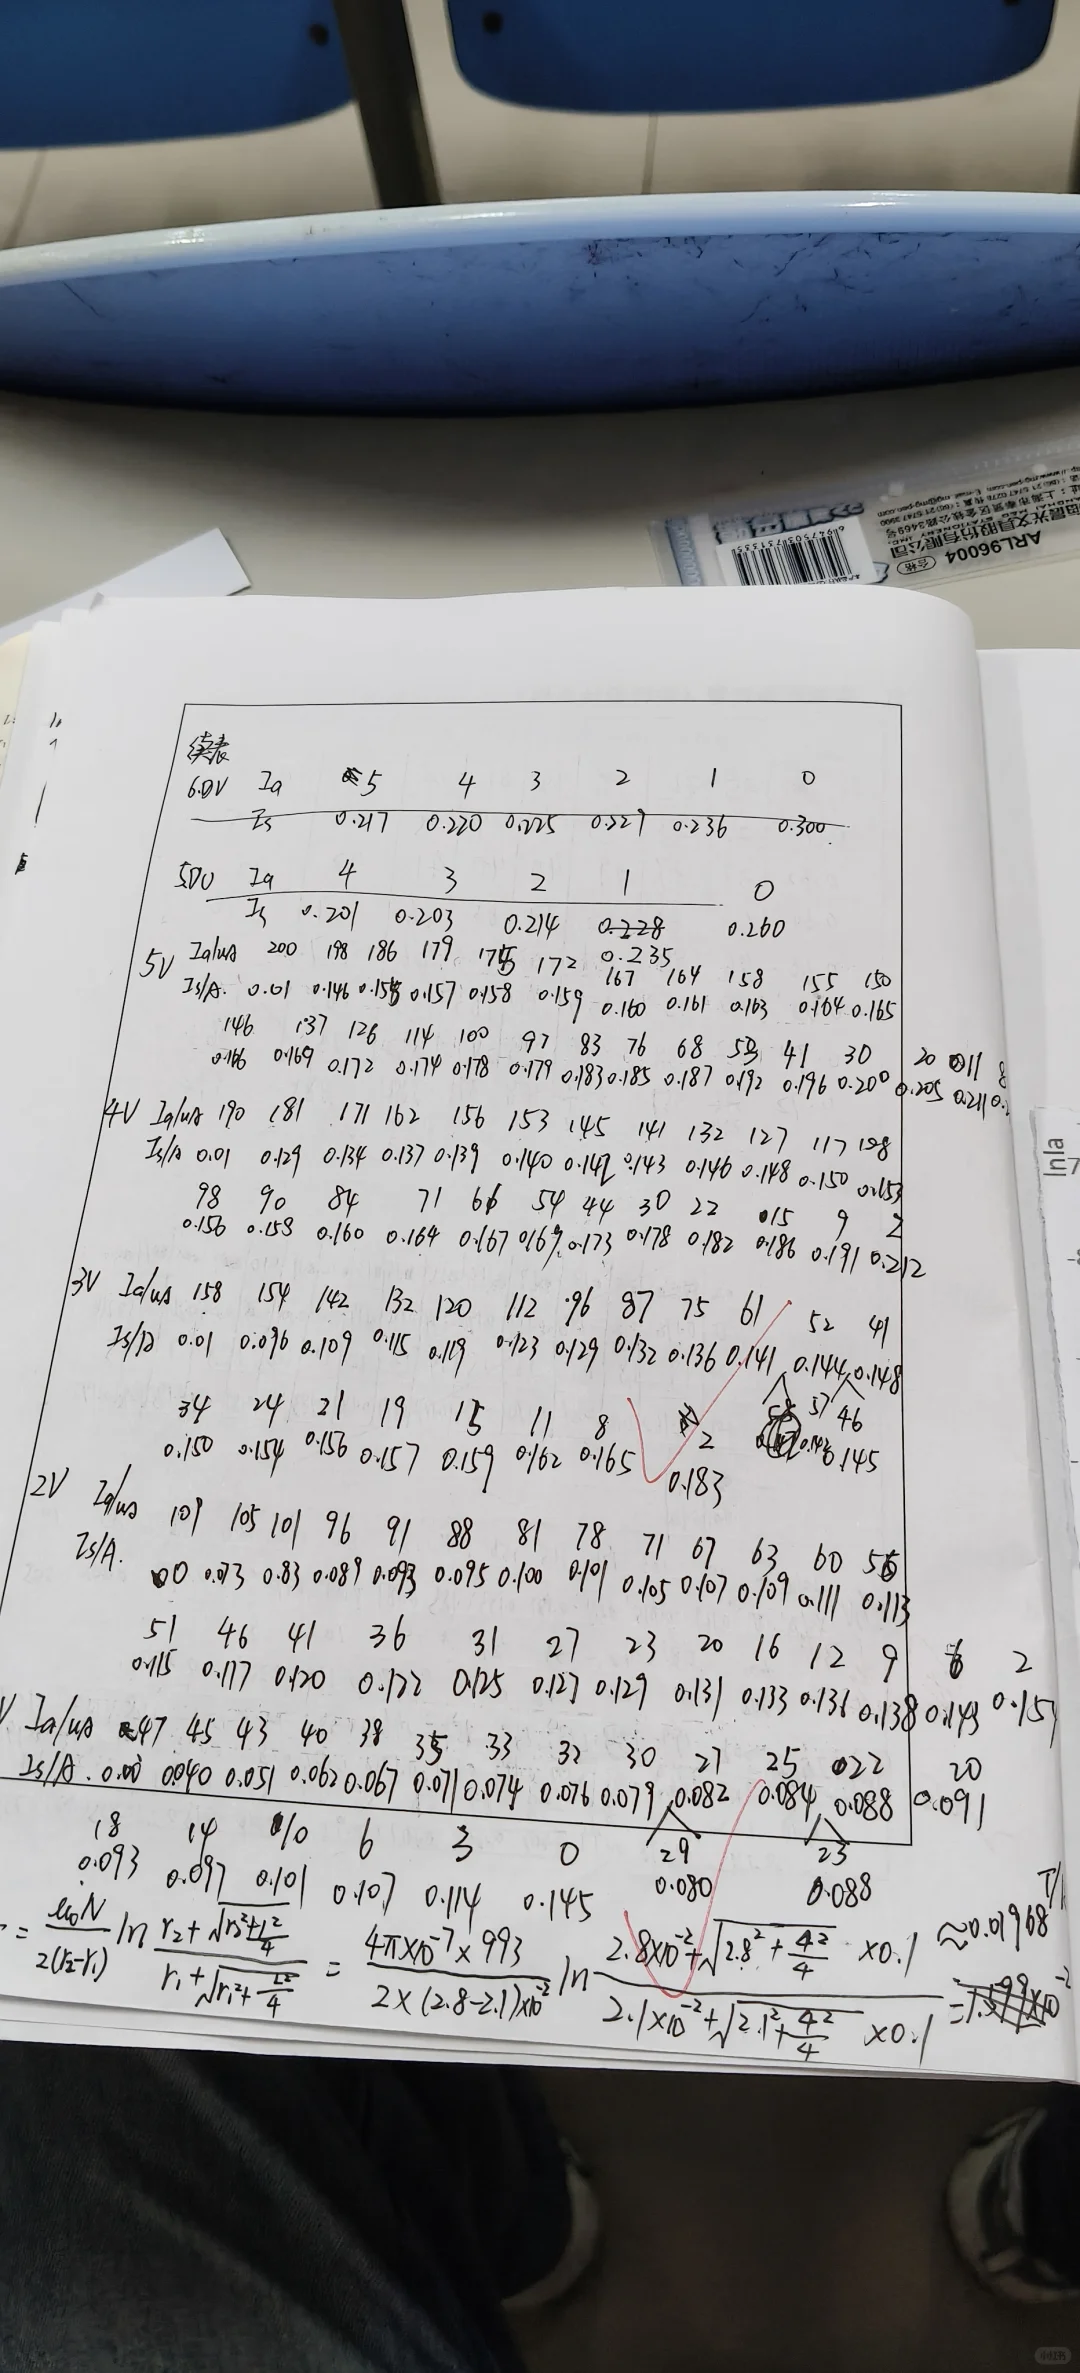 续表
6.0V Ia 5 4 3 2 1 0
Is 0.217 0.220 0.225 0.227 0.236 0.300
5.0V Ia 4 3 2 1 0
Is 0.201 0.203 0.214 0.228 0.260
0.235
5V Ia/uA 200 198 186 179 175 172 167 164 158 155 150
Is/A. 0.01 0.146 0.155 0.157 0.158 0.159 0.160 0.161 0.163 0.164 0.165
146 137 126 114 100 97 83 76 68 53 41 30 20 11 8
0.166 0.169 0.172 0.174 0.178 0.179 0.183 0.185 0.187 0.192 0.196 0.200 0.205 0.211 0.2
4V Ia/uA 190 181 171 162 156 153 145 141 132 127 117 108
Is/A 0.01 0.129 0.134 0.137 0.139 0.140 0.142 0.143 0.146 0.148 0.150 0.153
98 90 84 71 61 54 44 30 22 15 9 2
0.156 0.158 0.160 0.164 0.167 0.169 0.173 0.178 0.182 0.186 0.191 0.212
3V Ia/uA 158 154 142 132 120 112 96 87 75 61 52 41
Is/A 0.01 0.096 0.109 0.115 0.119 0.123 0.129 0.132 0.136 0.141 0.144 0.148
57 46
0.142 0.145
34 24 21 19 15 11 8 2
0.150 0.154 0.156 0.157 0.159 0.162 0.165 0.183
2V Ia/uA 109 105 101 96 91 88 81 78 71 67 63 60 56
Is/A. 00 0.073 0.83 0.089 0.093 0.095 0.100 0.101 0.105 0.107 0.109 0.111 0.113
51 46 41 36 31 27 23 20 16 12 9 6 2
0.115 0.117 0.120 0.122 0.125 0.127 0.129 0.131 0.133 0.136 0.138 0.143 0.157
V Ia/uA 47 45 43 40 38 35 33 32 30 27 25 22 20
Is/A. 0.00 0.040 0.051 0.062 0.067 0.071 0.074 0.076 0.079 0.082 0.084 0.088 0.091
29 23
0.080 0.088
18 14 10 6 3 0
0.093 0.097 0.101 0.107 0.114 0.145
= μ0N/2(r2-r1) ln (r2+√(r2²+L²/4))/(r1+√(r1²+L²/4)) = (4π×10⁻⁷×993)/(2×(2.8-2.1)×10⁻²) ln (2.8×10⁻²+√(2.8²+4²/4) ×0.1)/(2.1×10⁻²+√(2.1²+4²/4) ×0.1) ≈0.01968
lnIa
ARL96004
合格